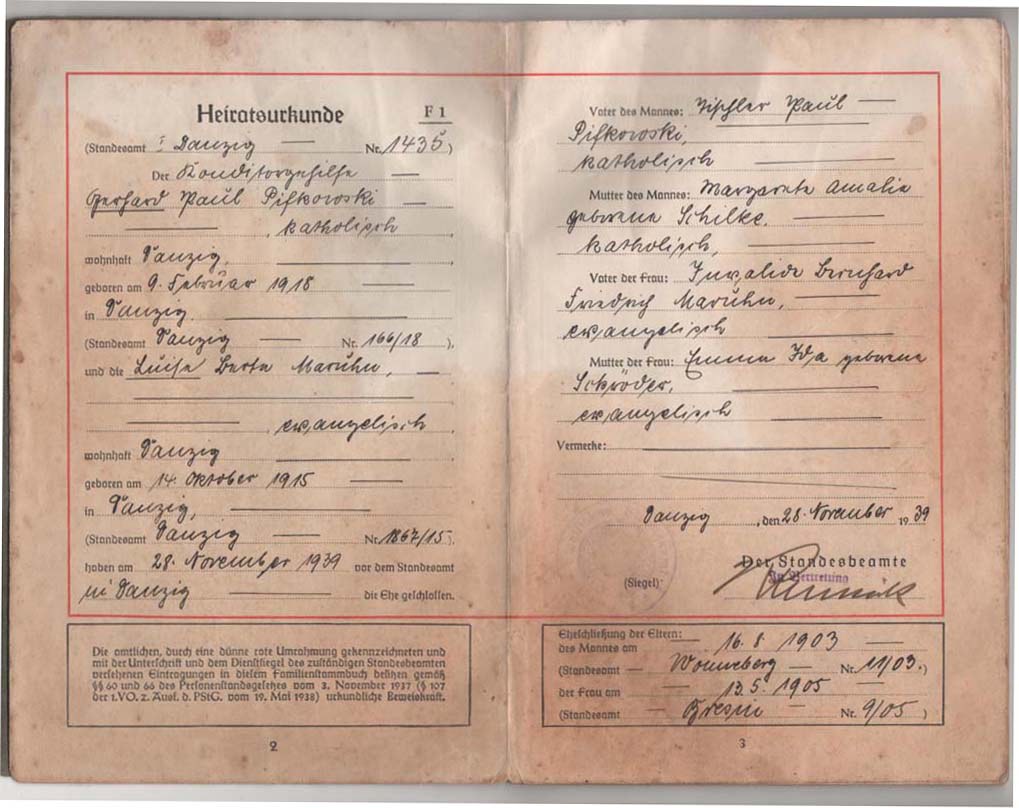 Heiratsurkunde F 1
(Standesamt I Danzig Nr. 1435)
Der Konditorgehilfe
Gerhard Paul Pifkowski
, katholisch
wohnhaft Danzig,
geboren am 9. Februar 1918
in Danzig
(Standesamt Danzig Nr. 166/18 ),
und die Luise Berta Maruhn,
, evangelisch
wohnhaft Danzig
geboren am 14. Oktober 1915
in Danzig,
(Standesamt Danzig Nr. 1867/15 ).
haben am 28. November 1939 vor dem Standesamt
in Danzig die Ehe geschlossen.
Die amtlichen, durch eine dünne rote Umrahmung gekennzeichneten und
mit der Unterschrift und dem Dienstsiegel des zuständigen Standesbeamten
versehenen Eintragungen in diesem Familienstammbuch besitzen gemäß
§§ 60 und 66 des Personenstandsgesetzes vom 3. November 1937 (§ 107
der 1. VO. z. Ausf. d. PStG. vom 19. Mai 1938) urkundliche Beweiskraft.
2
Vater des Mannes: Tischler Paul
Pifkowski,
katholisch
Mutter des Mannes: Margarete Amalie
geborene Schilke,
katholisch,
Vater der Frau: Invalide Bernhard
Friedrich Maruhn,
evangelisch
Mutter der Frau: Emma Ida geborene
Schröder,
evangelisch
Vermerke:
Danzig, den 28. November 1939
Der Standesbeamte
In Vertretung
(Siegel)
Eheschließung der Eltern:
des Mannes am 16. 8 1903
(Standesamt Wonneberg Nr. 11/03.)
der Frau am 13. 5. 1905
(Standesamt Nr. 9/05 )
3